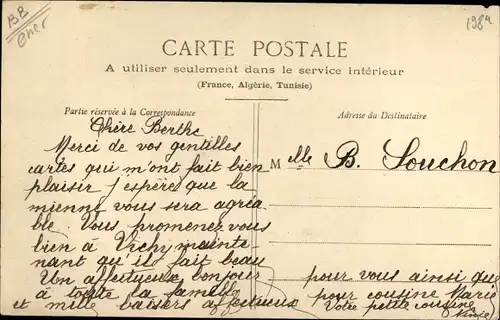 BB
1984
CARTE POSTALE
A utiliser seulement dans le service intérieur
(France, Algérie, Tunisie)
Partie réservée à la Correspondance
Adresse du Destinataire
Chère Berthe
Merci de vos gentilles
cartes qui m'ont fait bien
plaisir j'espère que la
mienne vous sera agréa
ble Vous promenez vous
bien à Vichy mainte-
nant qu'il fait beau
Un affectueux bonjour
à toute la famille
et mille baisers affectueux
pour vous ainsi que
pour cousine Marie
Votre petite cousine
Melle B. Souchon